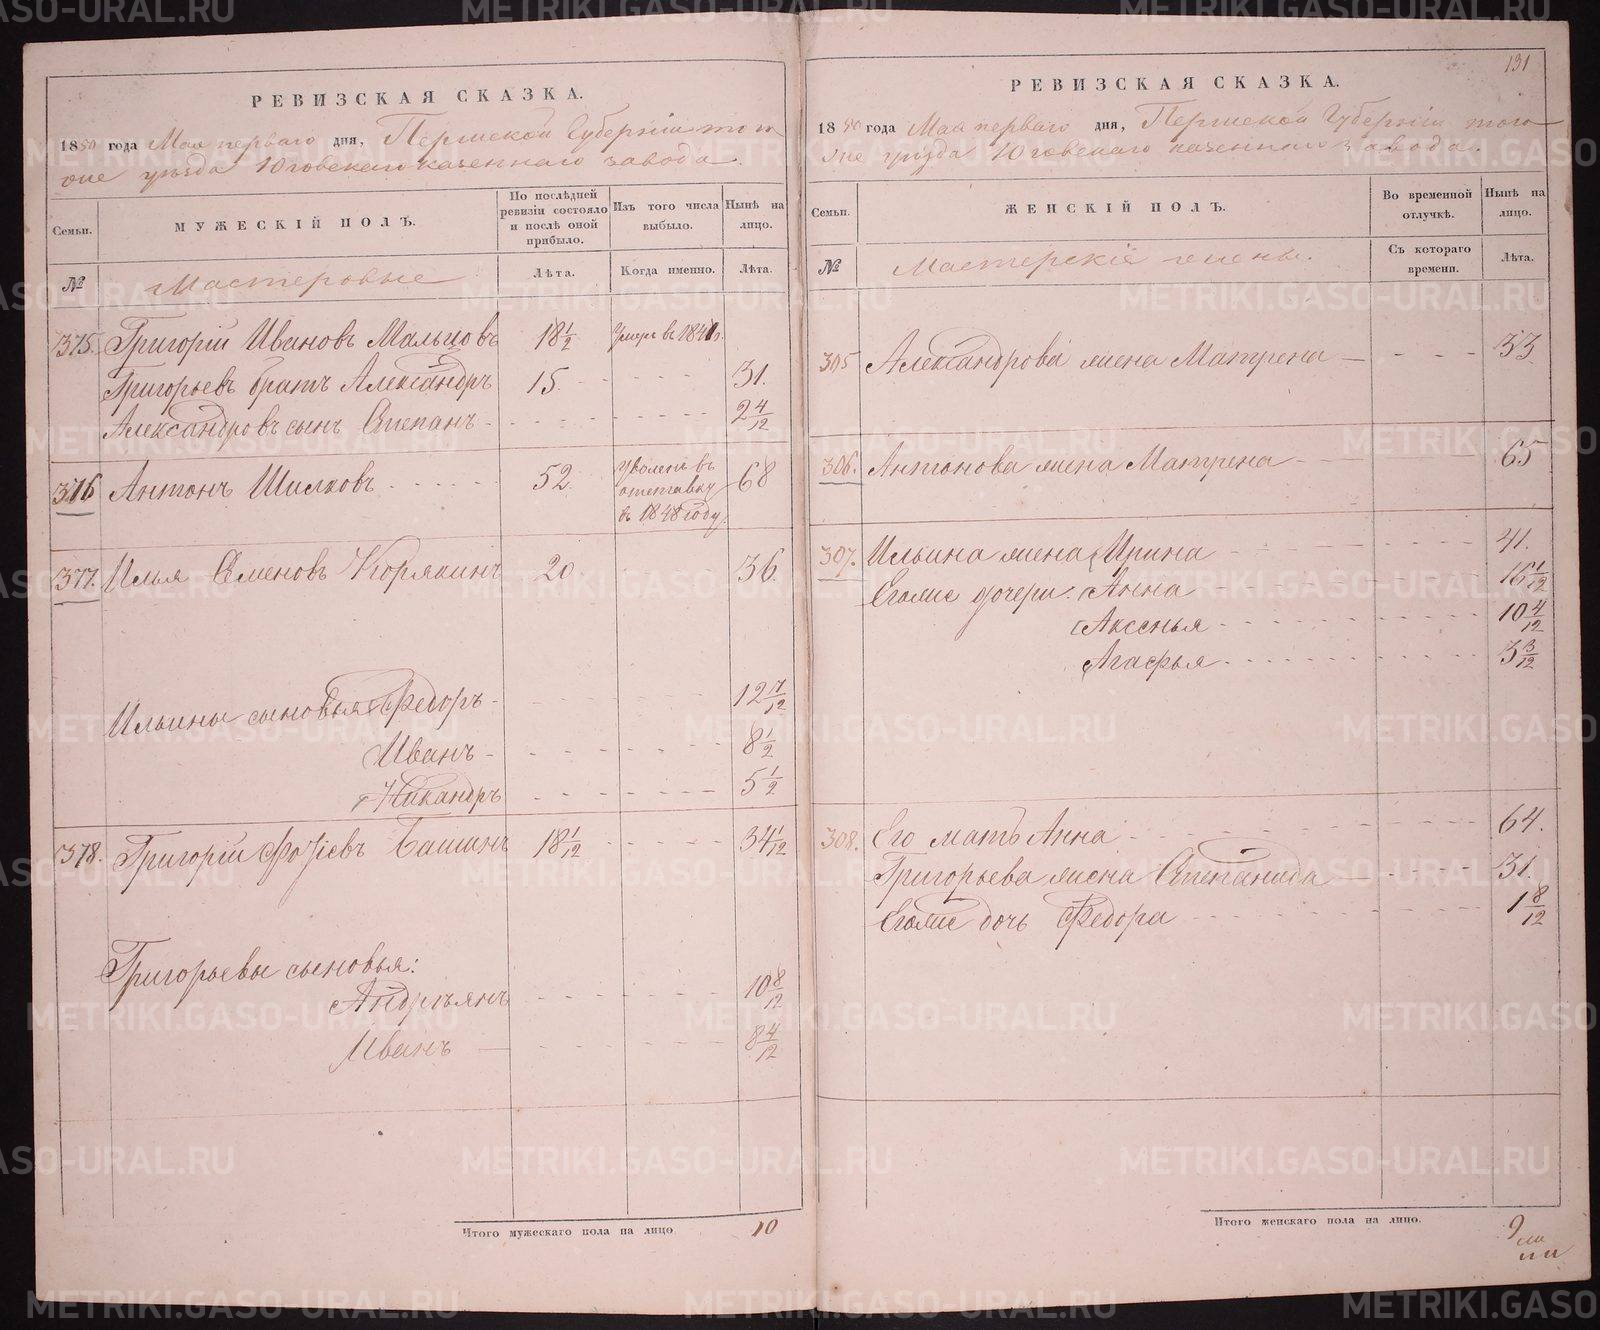 РЕВИЗСКАЯ СКАЗКА.
1850 года Мая перваго дня, Пермской Губерніи того
же уѣзда Юговскаго казеннаго завода.
Семьи.
МУЖЕСКІЙ ПОЛЪ.
По послѣдней ревизіи состояло и послѣ оной прибыло.
Изъ того числа выбыло.
Нынѣ на лицо.
№
Мастеровые
Лѣта.
Когда именно.
Лѣта.
375. Григорій Ивановъ Мальцовъ 18 1/2 Умеръ в 1841 г.
Григорьевъ братъ Александръ 15. 31.
Александровъ сынъ Степанъ 2 4/12
376 Антонъ Шилковъ 52. Уволенъ въ отставку в 1848 году. 68
377. Илья Семеновъ Корякинъ 20 36.
Ильины сыновья Федоръ 12 7/12
Иванъ 8 1/2
Никандръ 5 1/2
378. Григорій Фотіевъ 18 1/12 34 1/12
Григорьевы сыновья:
Андреянъ 10 8/12
Иванъ 8 4/12
Итого мужескаго пола на лицо 10
131
РЕВИЗСКАЯ СКАЗКА.
1850 года Мая перваго дня, Пермской Губерніи того
же уѣзда Юговскаго казеннаго завода.
Семьи.
ЖЕНСКІЙ ПОЛЪ.
Во временной отлучкѣ.
Нынѣ на лицо.
№
Мастерскіе жены.
Съ котораго времени.
Лѣта.
305 Александрова жена Матрена 33
306. Антонова жена Матрена 65
307. Ильина жена Ирина 41.
Егожъ дочери: Анна 16 1/12
Аксенья 10 4/12
Агафья 3 3/12
308. Его мать Анна 64.
Григорьева жена Степанида 31.
Егожъ дочь Федора 1 8/12
Итого женскаго пола на лицо. 9
METRIKI.GASO-URAL.RU